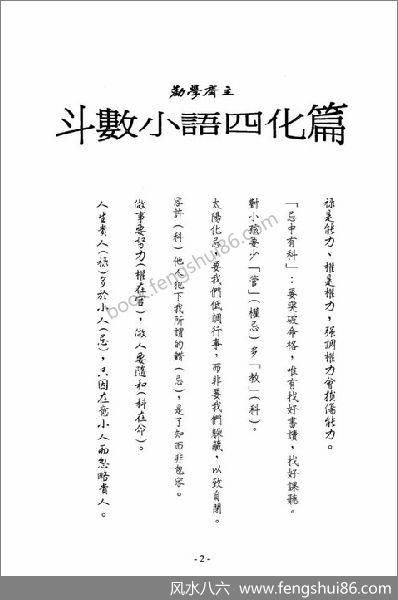 勤學齋主
斗數小語四化篇
祿是能力、權是權力，強調權力會損傷能力。
「忌中有科」：要突破命格，唯有找好書讀，找好課聽。
對小孩要少「管」(權忌)多「教」(科)。
太陽化忌，要我們低調行事，而非要我們躲藏，以致自閉。
容許(科)他人犯下我所謂的錯(忌)，是了知而非包容。
做事要努力(權在官)，做人要隨和(科在命)。
人生貴人(祿)多於小人(忌)，只因在意小人而忽略貴人。
book.fengshui86.com
- 2 -
风水八六 - www.fengshui86.com